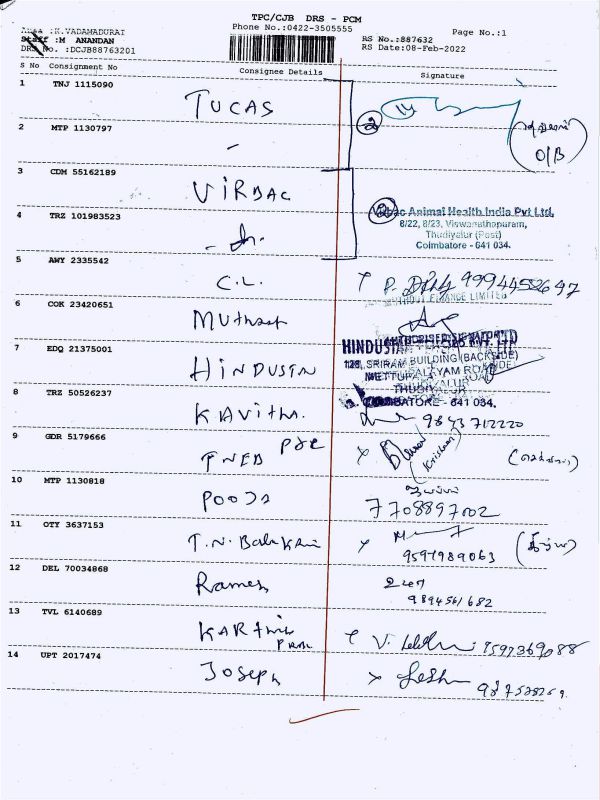 TPC/CJB DRS - PCM
Area :K.VADAMADURAI
Phone No.:0422-3505555
Page No.:1
Staff :M ANANDAN
RS No.:887632
DRS No. :DCJB88763201
RS Date:08-Feb-2022
S No Consignment No Consignee Details Signature
1 TNJ 1115090
TUCAS
2 MTP 1130797
-
2
O/B
3 CDM 55162189
VIRBAC
4 TRZ 101983523
Virbac Animal Health India Pvt Ltd.
8/22, 8/23, Viswanathapuram,
Thudiyalur (Post)
Coimbatore - 641 034.
5 AWY 2335542
C.L. 9994452647
MUTHOOT FINANCE LIMITED
6 COK 23420651
Muthoot
AUTHORISED SIGNATORY
7 EDQ 21375001
HINDUSTAN
HINDUSTAN PVT. LTD
128, SRIRAM BUILDING (BACKSIDE)
METTUPALAYAM ROAD
THUDIYALUR
COIMBATORE - 641 034.
8 TRZ 50526237
KAVITHA. 9843712220
9 GDR 5179666
TNEB
(Krishnan)
10 MTP 1130818
POOJA
7708897002
11 OTY 3637153
T.N. Balakrni
9597989063
12 DEL 70034868
Ramesh
9894561682
13 TVL 6140689
KARthik
PRAL
V. 9597369088
14 UPT 2017474
Joseph